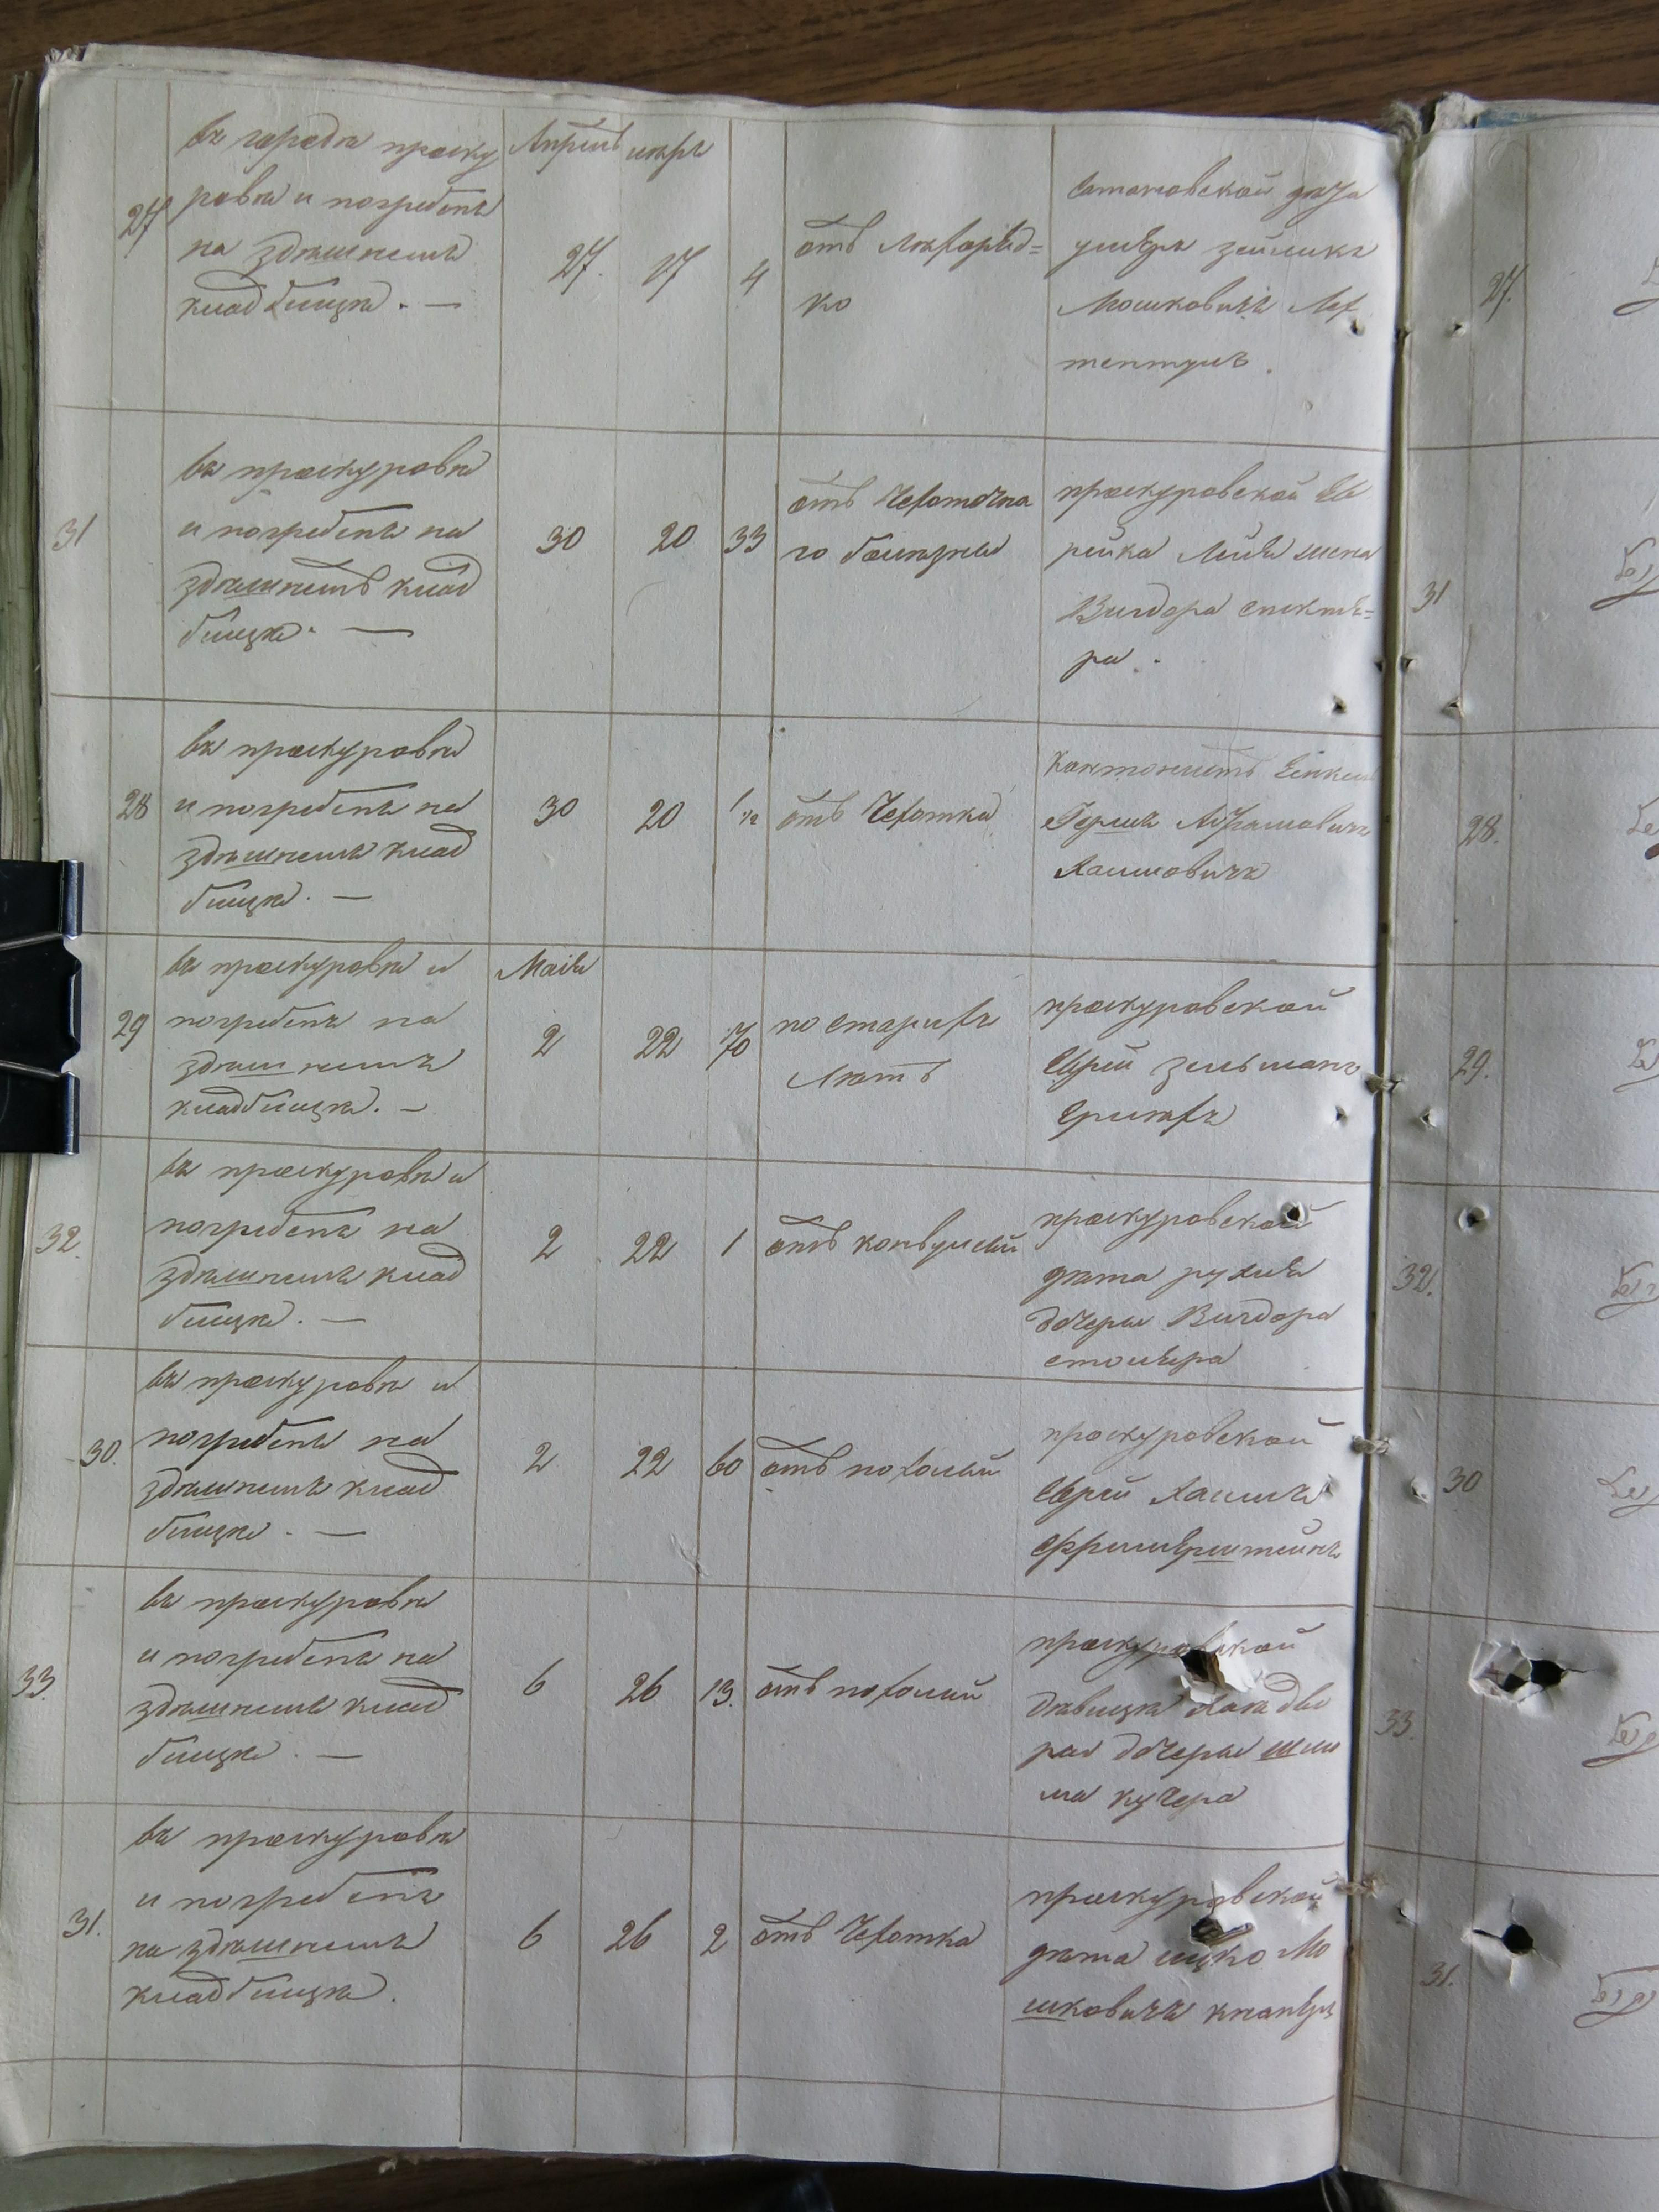 27
въ городѣ проску
ровѣ и погребенъ
на здѣшнемъ
кладбищѣ. —
Апрель
27. 17 4
отъ
ко
Сатановской
умеръ зейликъ
Мошковичъ
27.
31
въ проскуровѣ
и погребенъ на
здѣшнемъ клад
бищѣ. —
30 20 33
отъ Чехоточна
го
проскуровской Ев
рейка Лейя жена
Вигдора спекто=
ра.
31
28
въ проскуровѣ
и погребенъ на
здѣшнемъ клад
бищѣ. —
30 20 1 1/2
отъ Чехотки
Кантонистъ
Гершъ Абрамовичъ
Хаимовичъ
28.
29
въ проскуровѣ и
погребенъ на
здѣшнемъ
кладбищѣ. —
Маия
2 22 70
по старихъ
лѣтъ
проскуровской
Еврей зельманъ
29.
32.
въ проскуровѣ и
погребенъ на
здѣшнемъ клад
бищѣ. —
2 22 1
отъ конвулсіи
проскуровской
дѣта рухля
дочеръ Вигдора
столяра
32.
30.
въ проскуровѣ и
погребенъ на
здѣшнемъ клад
бищѣ. —
2 22 60
отъ
проскуровской
Еврей Хаимъ
30
33.
въ проскуровѣ
и погребенъ на
здѣшнемъ клад
бищѣ. —
6 26 13.
отъ
проскуровской
дѣвица Хана две
ра дочеръ шли
ма кучера
33.
31.
въ проскуровѣ
и погребенъ
на здѣшнемъ
кладбищѣ.
6 26 2
отъ Чехотка
проскуровской
дѣта ицко Мо
шковичъ
31.